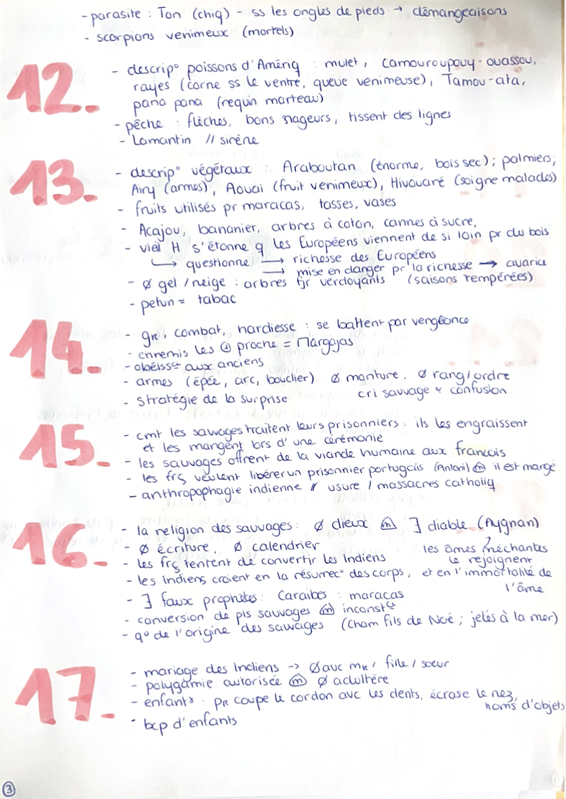 - parasite : Ton (chiq) - ss les ongles de pieds → démangeaisons
- scorpions venimeux (mortels)
12.
- descrip° poissons d'Amérq : mulet, camouroupouy-ouassou,
rayes (corne ss le ventre, queue venimeuse), Tamou-ata,
pana pana (requin marteau)
- pêche : flèches, bons nageurs, tissent des lignes
- Lamantin // sirène
13.
- descrip° végétaux : Araboutan (énorme, bois sec) ; palmiers,
Airy (armes), Aouai (fruit venimeux), Hivouaré (soigne malades)
- fruits utilisés pr maracas, tasses, vases
- Acajou, bananier, arbres à coton, cannes à sucre,
- vieil H s'étonne q les Européens viennent de si loin pr du bois
↳ questionne → richesse des Européens
→ mise en danger pr la richesse → avarice
- Ø gel / neige : arbres tjr verdoyants (saisons tempérées)
- petun = tabac
14.
- grr, combat, hardiesse : se battent par vengeance
- ennemis les ⊕ proche = Margajas
- obéisst aux anciens
- armes (épée, arc, bouclier) Ø monture, Ø rang/ordre
- stratégie de la surprise cri sauvage + confusion
15.
- cmt les sauvages traitent leurs prisonniers : ils les engraissent
et les mangent lors d'une cérémonie
- les sauvages offrent de la viande humaine aux francais
- les frç veulent libérer un prisonnier portugais (Antoni) ⓜ il est mangé
- anthropophagie indienne // usure / massacres catholiq
16.
- la religion des sauvages : Ø dieux ⓜ ∃ diable (Aygnan)
- Ø écriture, Ø calendrier les âmes méchantes
- les frç tentent de convertir les Indiens le rejoignent
- les Indiens croient en la résurrec° des corps, et en l'immortalité de
l'âme
- ∃ faux prophètes : Caraïbes : maracas
- conversion de pls sauvages ⓜ inconstce
- q° de l'origine des sauvages (Cham fils de Noé ; jetés à la mer)
17.
- mariage des Indiens → Ø avc mr / fille / sœur
- polygamie autorisée ⓜ Ø adultère
- enfants : pr coupe le cordon avc les dents, écrase le nez,
noms d'objets
- bcp d'enfants
3